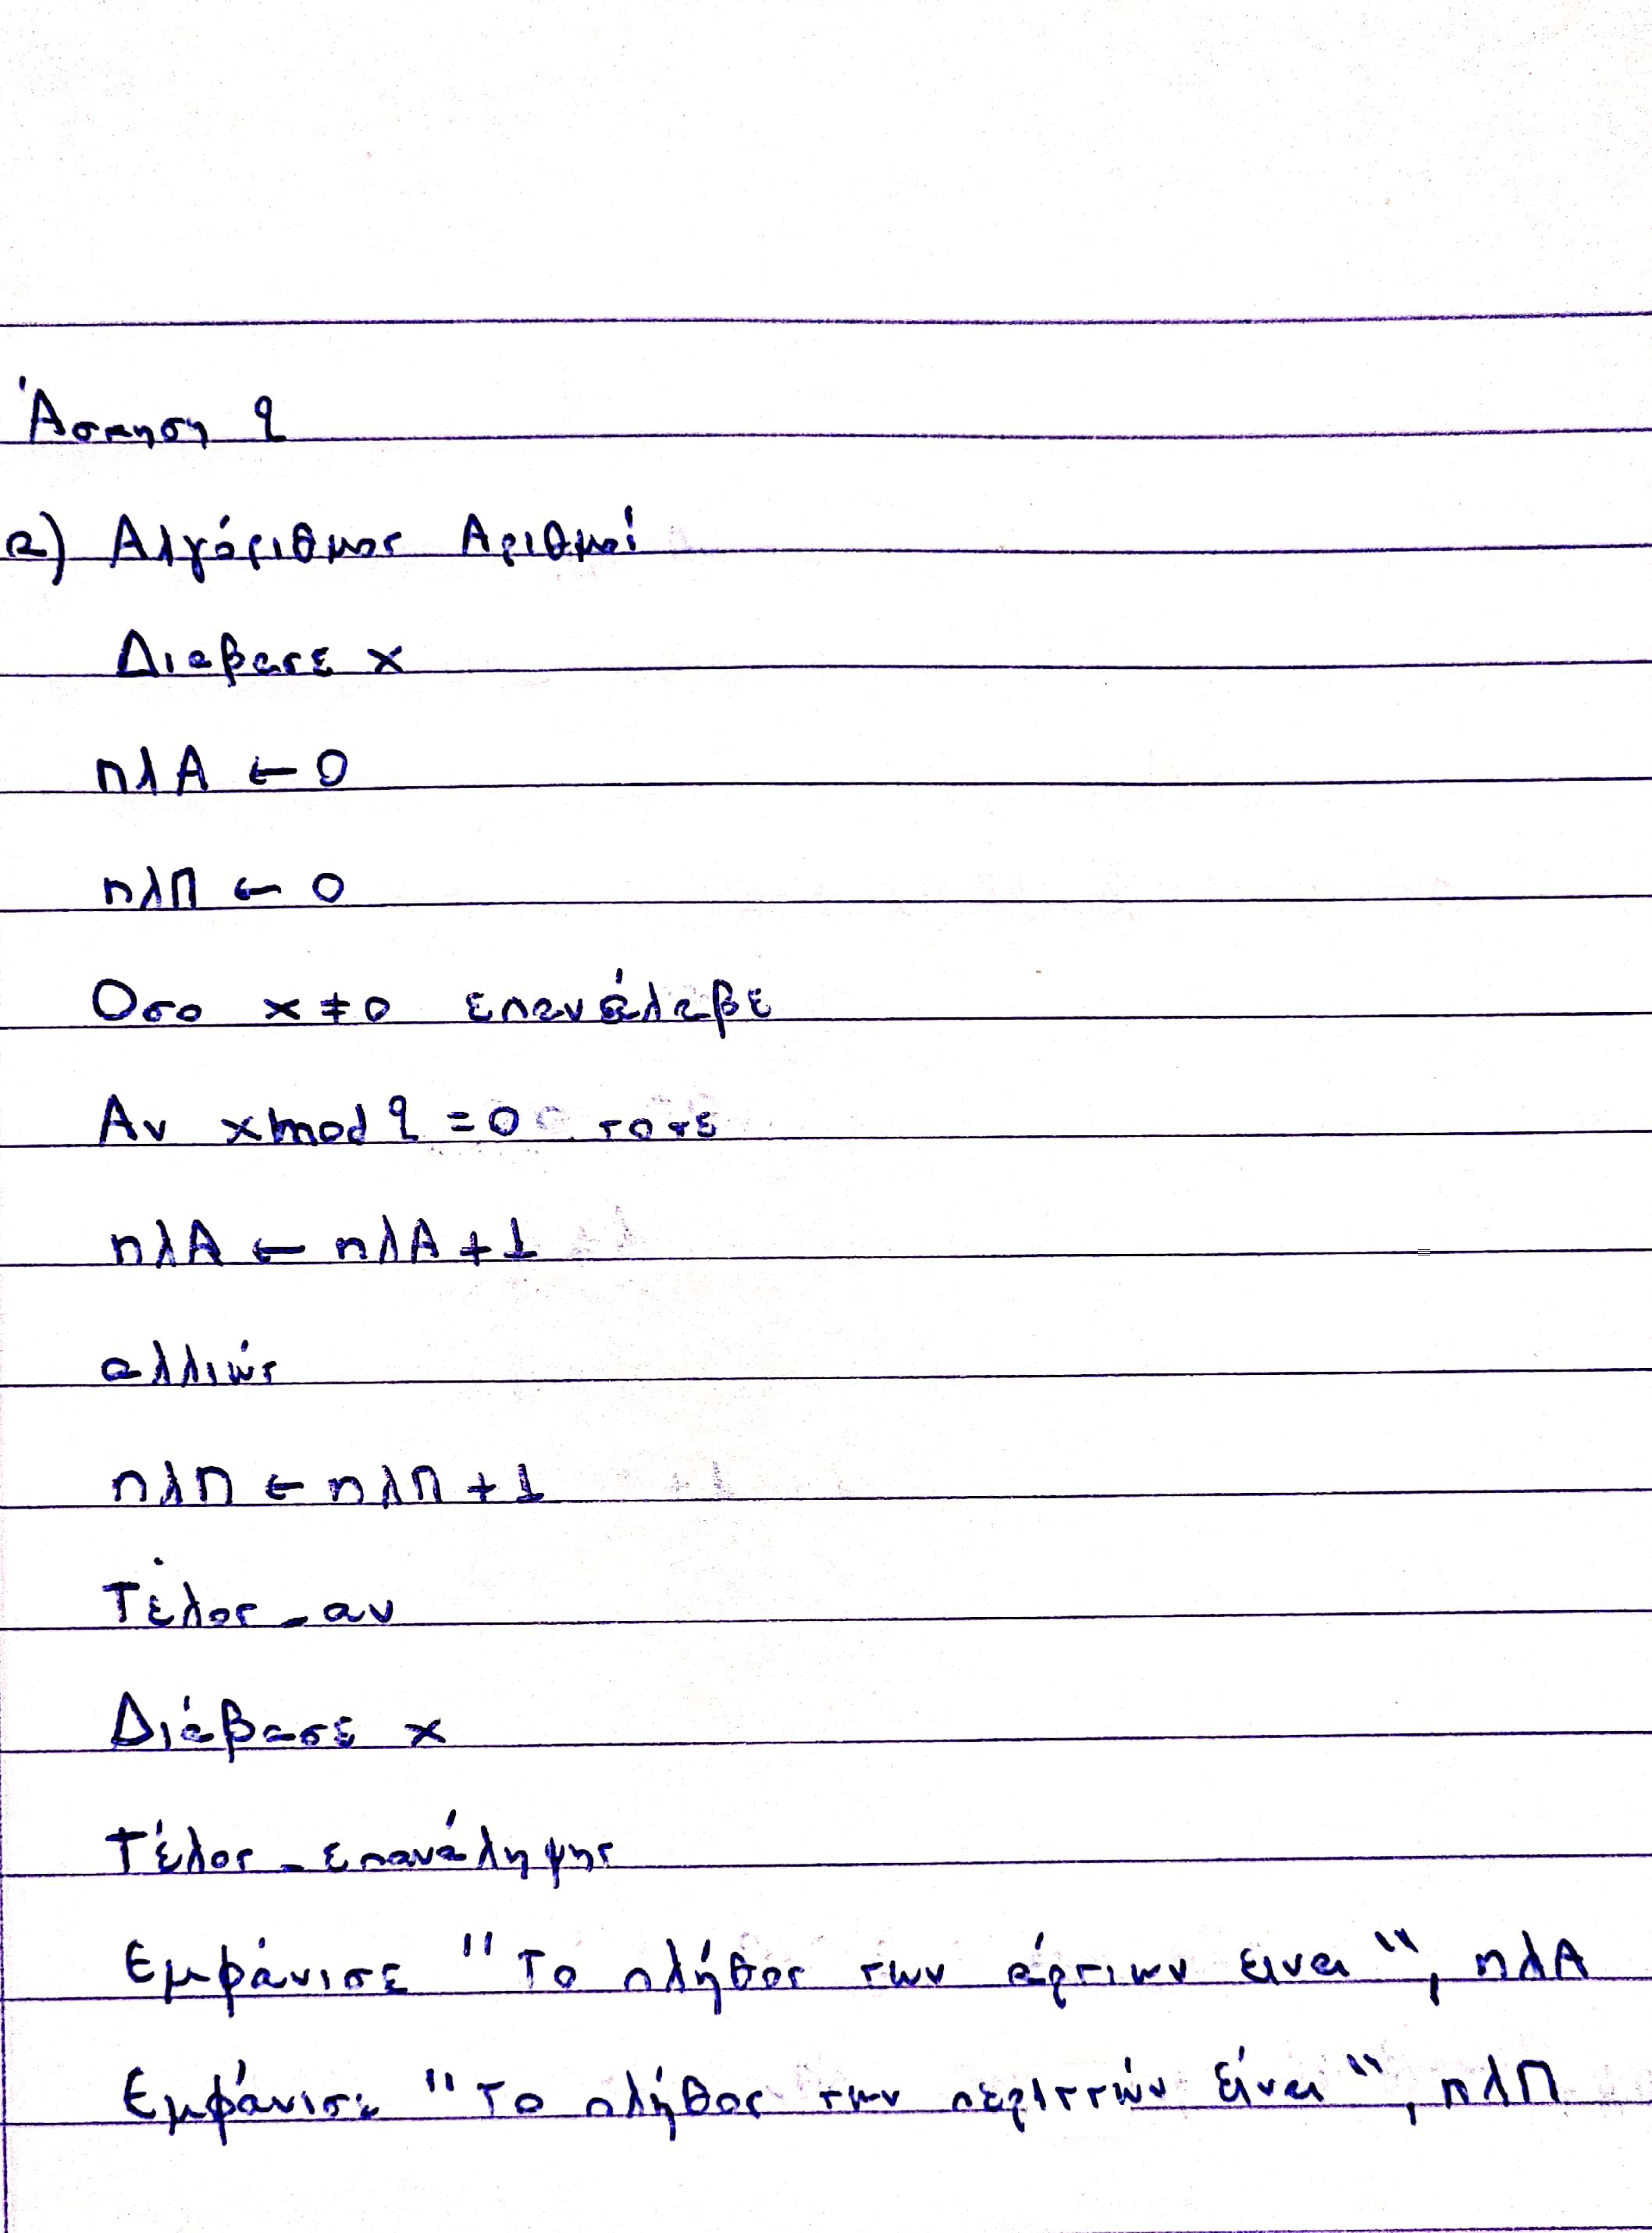 Άσκηση 2
α) Αλγόριθμος Αριθμοί
Διαβασε x
πλΑ ← 0
πλΠ ← 0
Οσο x ≠ 0 επανάλαβε
Αν x mod 2 = 0 τοτε
πλΑ ← πλΑ + 1
αλλιώς
πλΠ ← πλΠ + 1
Τέλος_αν
Διάβασε x
Τέλος_επανάληψης
Εμφάνισε "Το πλήθος των άρτιων ειναι", πλΑ
Εμφάνισε "Το πλήθος των περιττών είναι", πλΠ